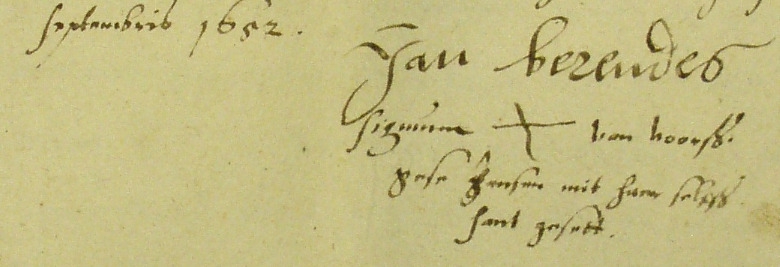 septembris 1652.
Jan berendes
signum + van voorss.
gese Jensen mit haer selffs
hant gesett.